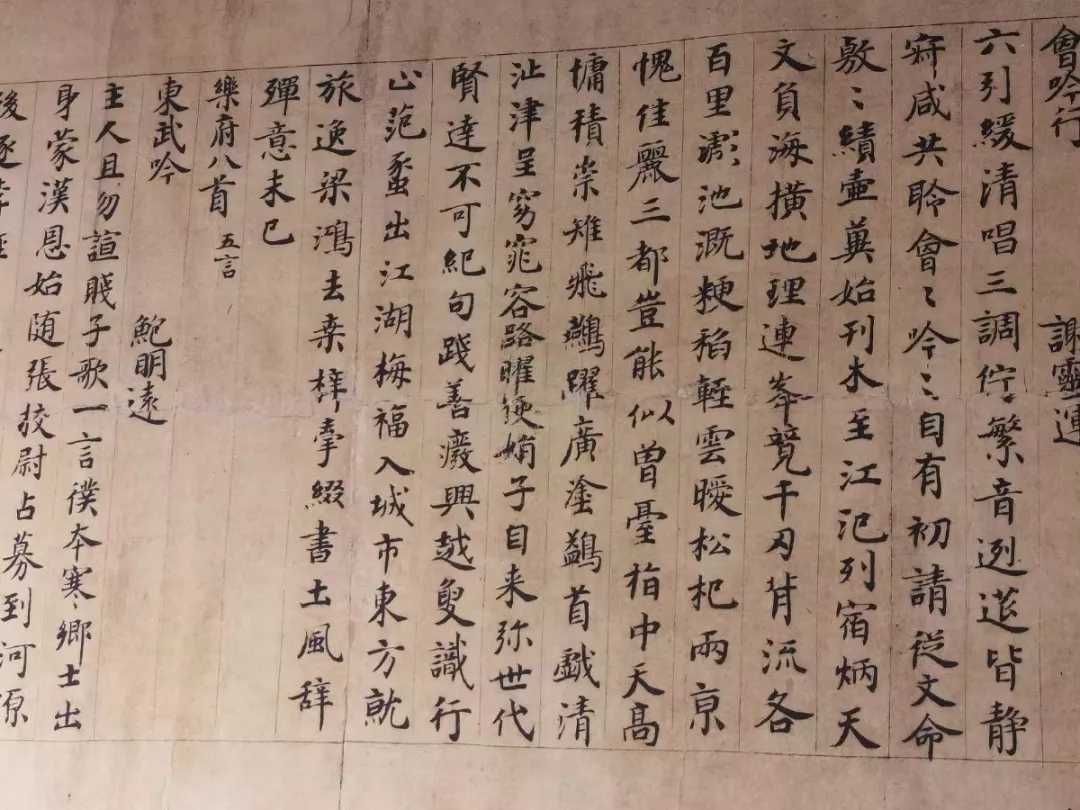 會吟行 謝靈運
六引緩清唱三調佇繁音迾莚皆静
寂咸共聆會〻吟〻自有初請従文命
敷〻績壺冀始刊木至江汜列宿炳天
文負海横地理連峯競千刃背流各
百里滮池溉粳稻輕雲曖松杞兩京
愧佳麗三都豈能似曾臺指中天高
墉積崇雉飛鷰躍廣塗鷁首戱清
沚津呈窈窕容路曜㛹娟子自来弥世代
賢達不可紀句踐善癈興越叟識行
止范蠡出江湖梅福入城市東方就
旅逸梁鴻去桑梓牽綴書土風辞
殫意未已
樂府八首 五言
東武吟 鮑明遠
主人且勿諠賤子歌一言僕本寒〻郷士出
身蒙漢恩始随張挍尉占募到河源
後逐李